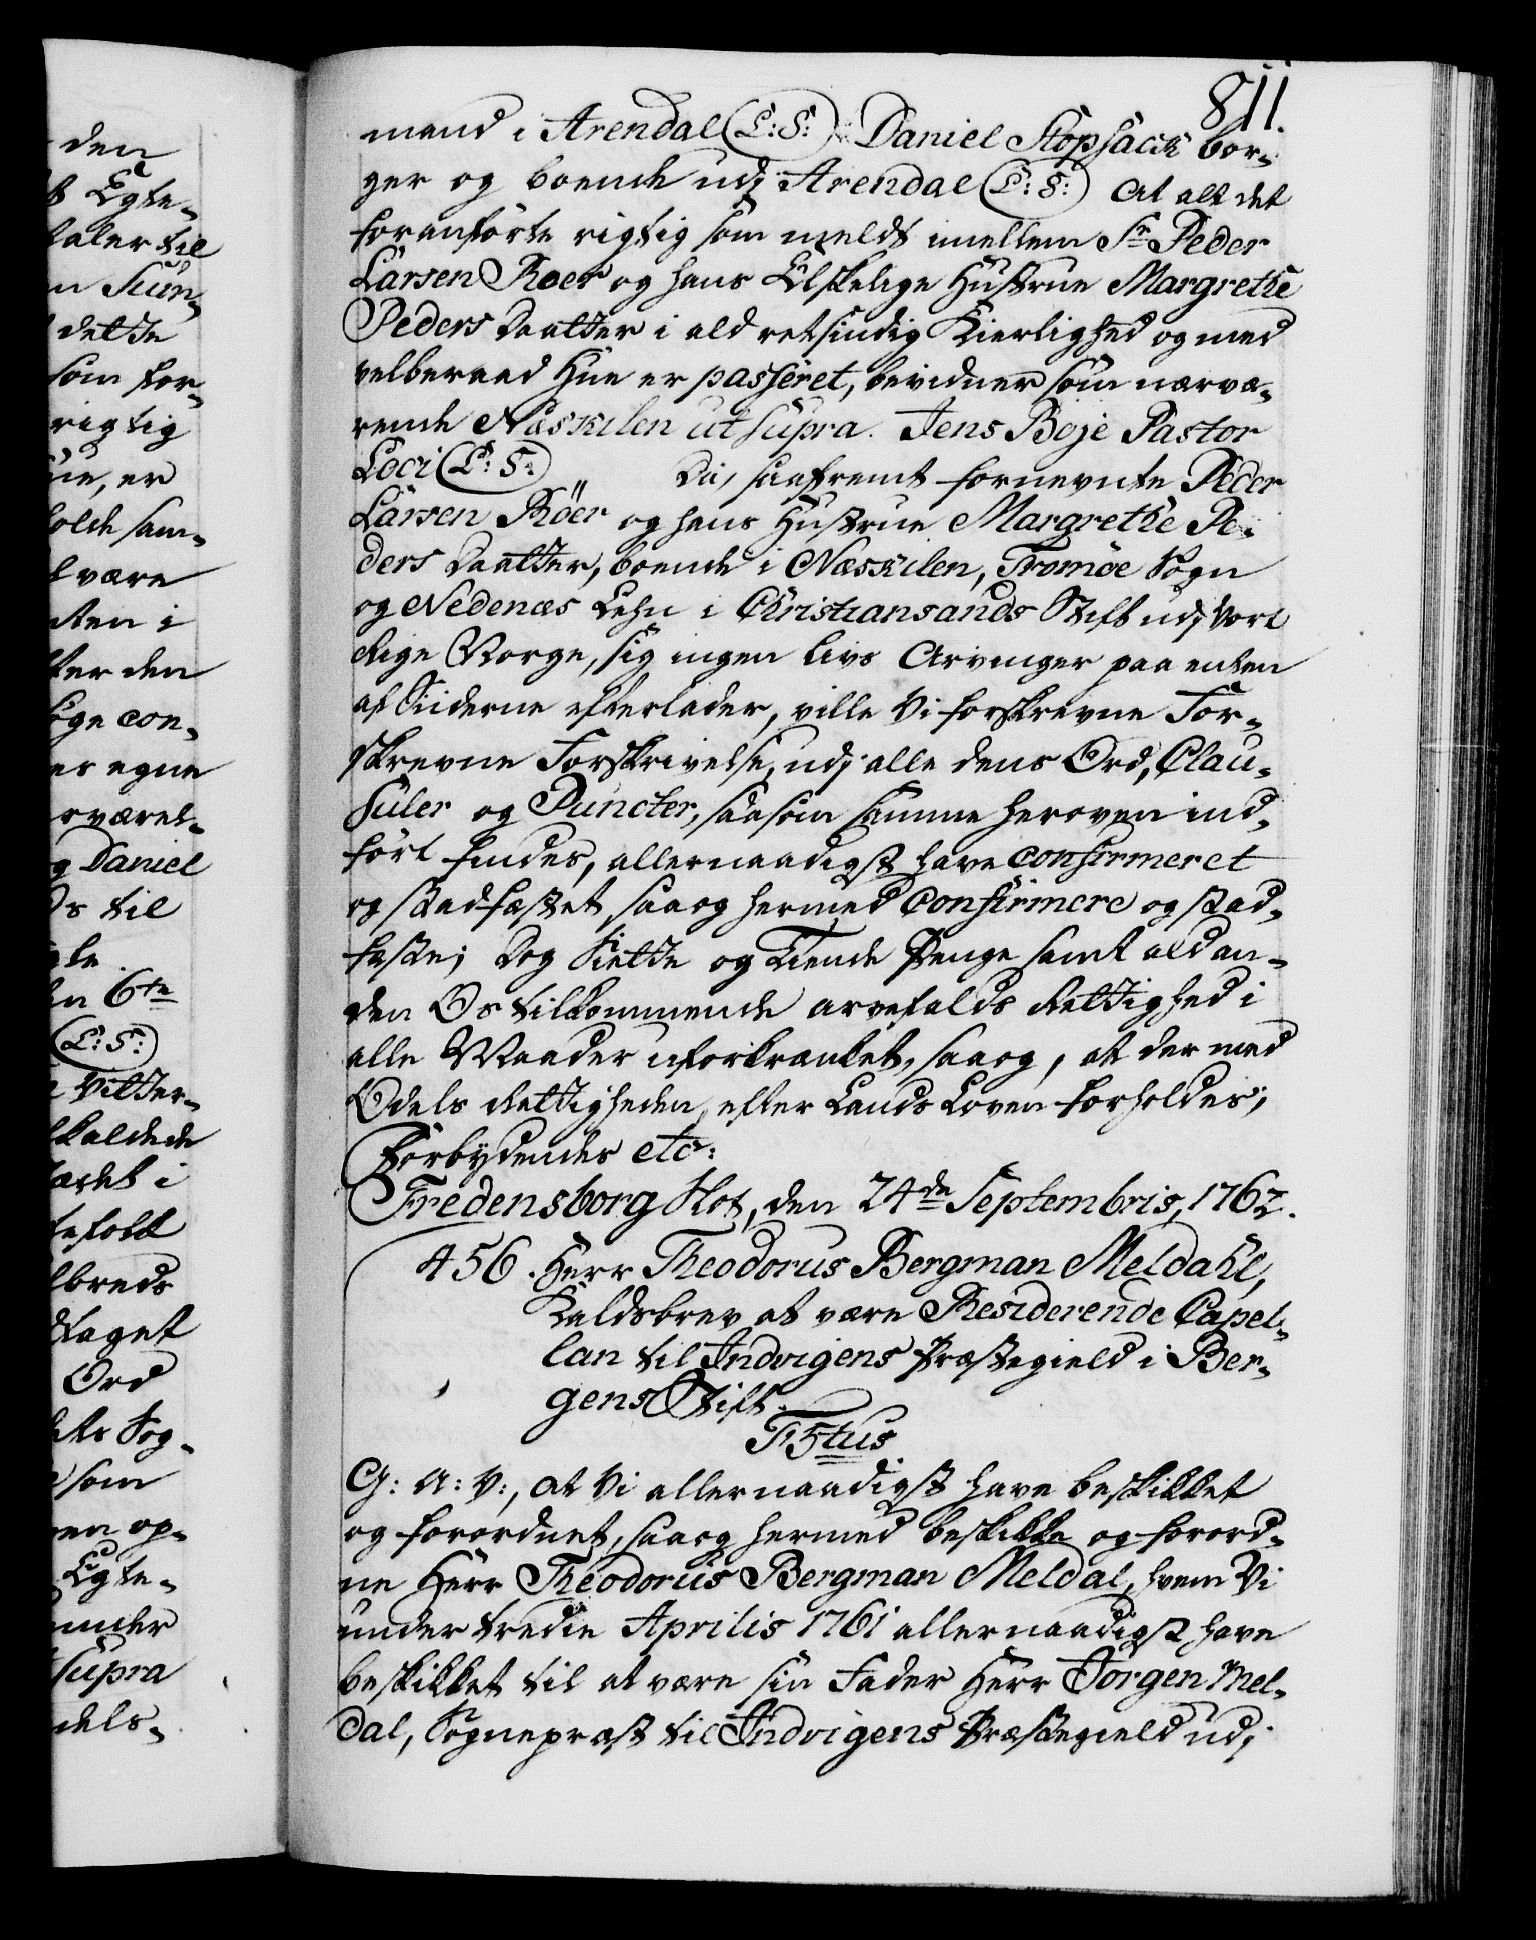 811.
mand i Arendal (L:S:) Daniel Stopsack bor-
ger og boende udj Arendal (L:S:) At alt det
foranförte rigtig som meldt imellem Sr Peder
Larsen Roer og hans Elskelige Hustrue Margrethe
Peders Daatter i ald retsindig Kierlighed og med
velberaad Hue er passeret, bevidner som nærvæ-
rende Næskilen ut supra. Jens Boje Pastor
Loci (L:S:) Da, saafremt fornevnte Peder
Larsen Röer og hans Hustrue Margrethe Pe-
ders Daatter, boende i Næskilen, Tromöe Sogn
og Nedenæs Lehn i Christiansands Stift udj Vort
Rige Norge, sig ingen livs Arvinger paa enten
af Siiderne efterlader, ville Vi forskrevne For-
skrevne Forskrivelse, udj alle dens Ord, Clau-
suler og Puncter, saasom samme heroven ind-
fört findes, allernaadigst have confirmeret
og stadfæstet, saa og hermed Confirmere og stad-
fæste; Dog Siette og Tiende Penge samt ald an-
den Os tilkommende arvefalds Rettighed i
alle Maader uforkrænket, saa og, at der med
Odels Rettigheden, efter Lands Loven forholdes;
Forbydendes etc:
Fredensborg Slot, den 24de Septembris, 1762.
456. Herr Theodorus Bergman Meldahl,
Kaldsbrev at være Residerende Capel-
lan til Indvigens Præstegield i Ber-
gens Stift.
F5tus
G: A: V:, at Vi allernaadigst have beskikket
og forordnet, saa og hermed beskikke og forord-
ne Herr Theodorus Bergman Meldal, hvem Vi
under tredie Aprilis 1761 allernaadigst have
beskikket til at være sin Fader Herr Jörgen Mel-
dal, Sognepræst til Indvigens Præstegield udj
den
Egte-
taler til
Sun-
dette
som for-
rigtig
ue, er
holde sam-
være
sten i
ter den
con-
es egne
rværel-
g Daniel
Os til
6te
(L:S:)
Vitter-
kaldede
i
tefolk
lbreds
dtaget
Ord
Sog-
som
en op-
Egte-
under
supra
dels-